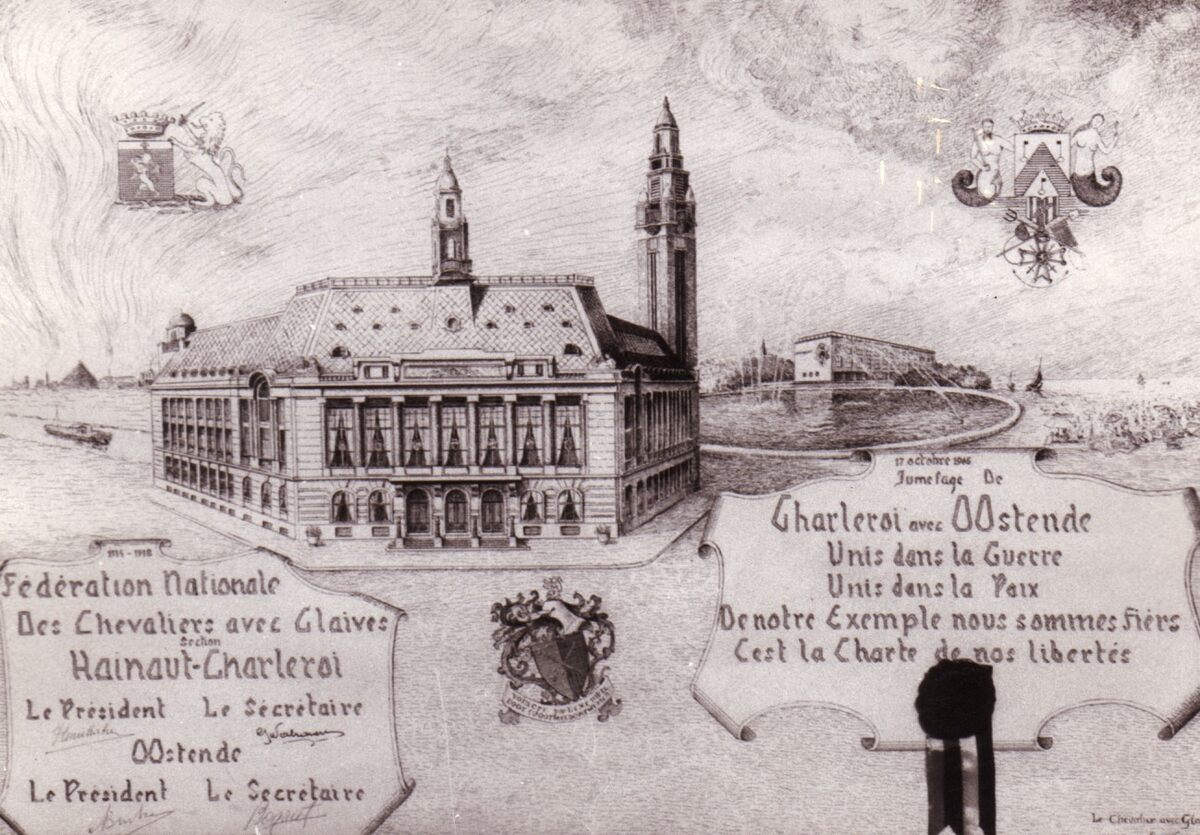 1914 - 1918
Fédération Nationale
Des Chevaliers avec Glaives
Section
Hainaut-Charleroi
Le Président Le Sécrétaire
OOstende
Le Président Le Secrétaire
17 octobre 1965
Jumelage De
Charleroi avec OOstende
Unis dans la Guerre
Unis dans la Paix
De notre Exemple nous sommes fièrs
C'est la Charte de nos libertés
Le Chevalier avec Gla